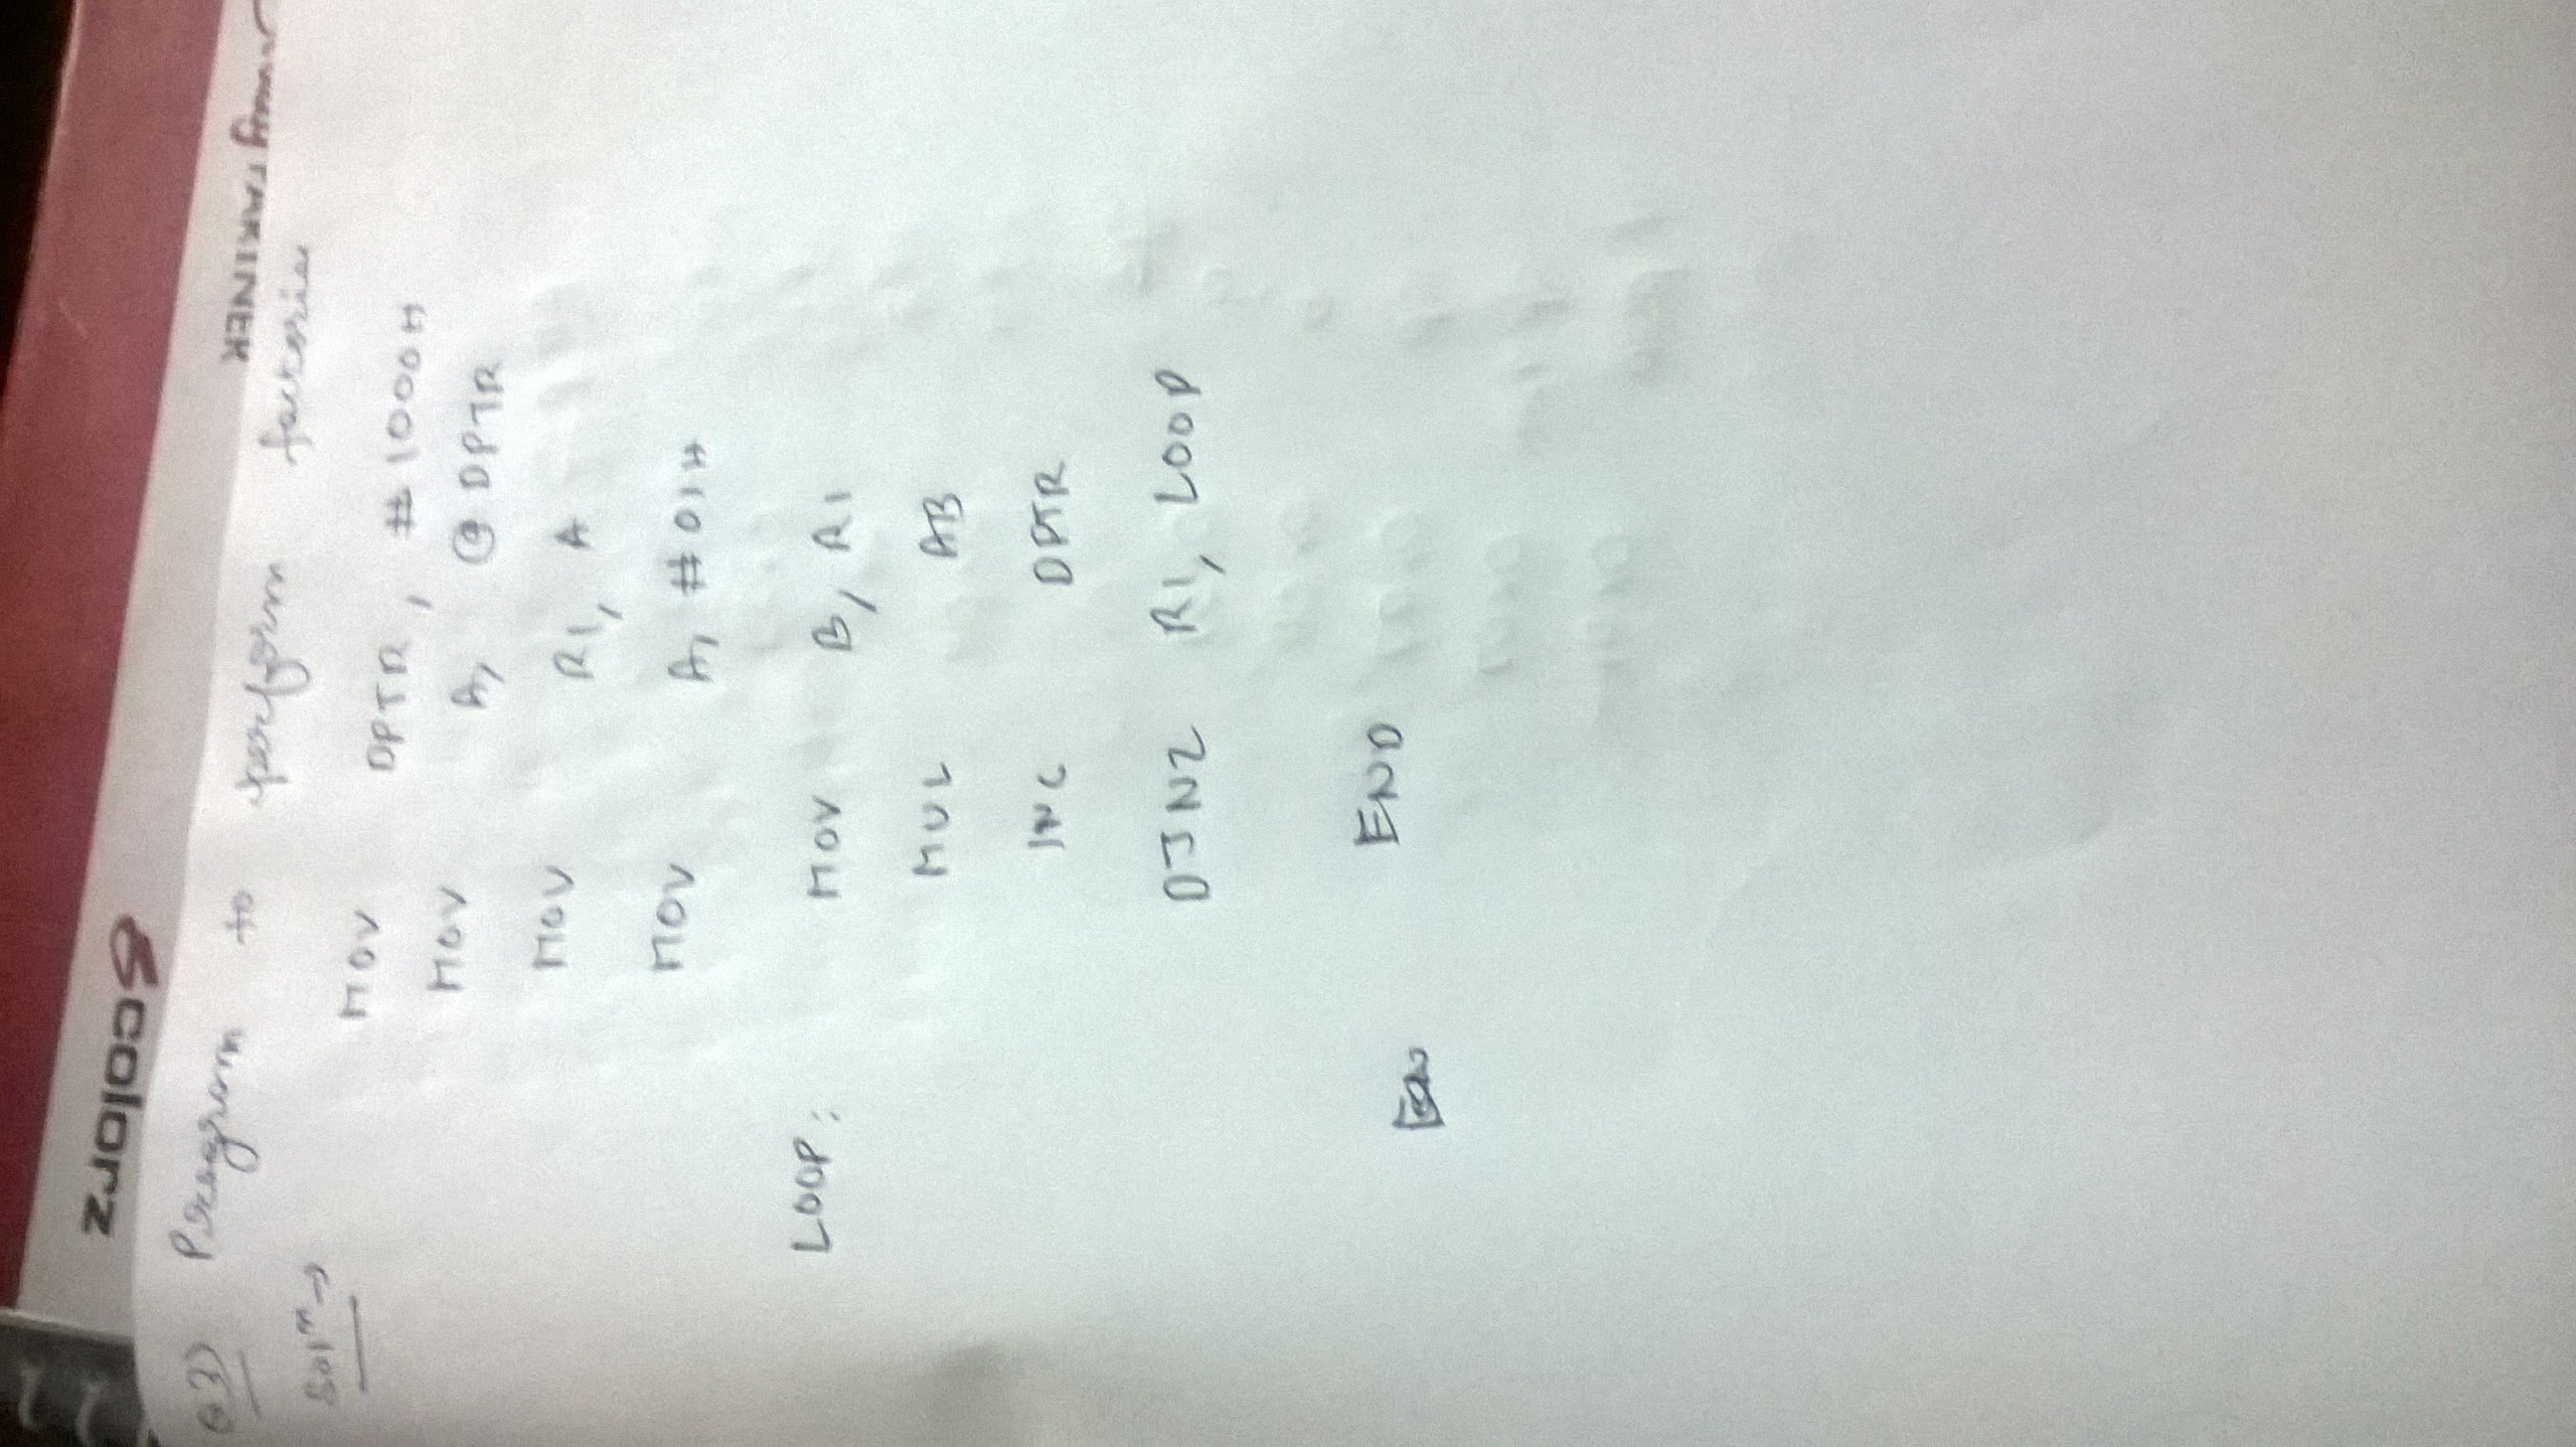 5 colorz
TAKINER
Q 3) Program to perform factorial
Solⁿ →
MOV DPTR, #1000H
MOV A, @DPTR
MOV R1, A
MOV A, #01H
LOOP: MOV B, R1
MUL AB
INC DPTR
DJNZ R1, LOOP
END